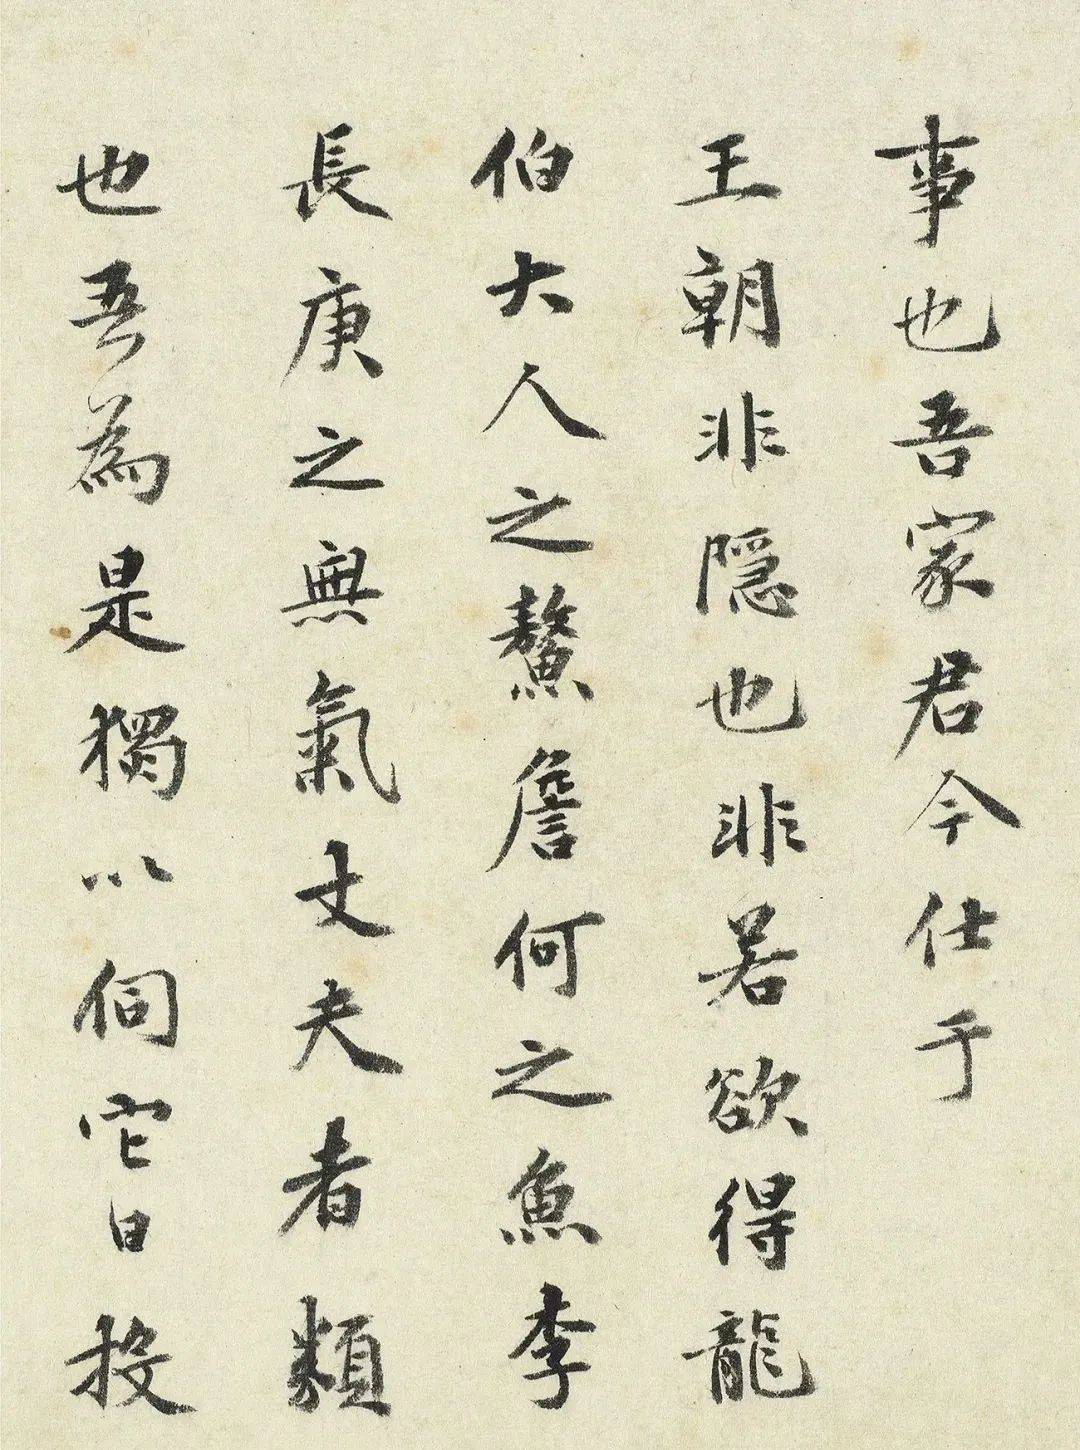 事也吾家君今仕于
王朝非隱也非若欲得龍
伯大人之鰲詹何之魚李
長庚之無氣丈夫者類
也吾為是獨以伺它日投